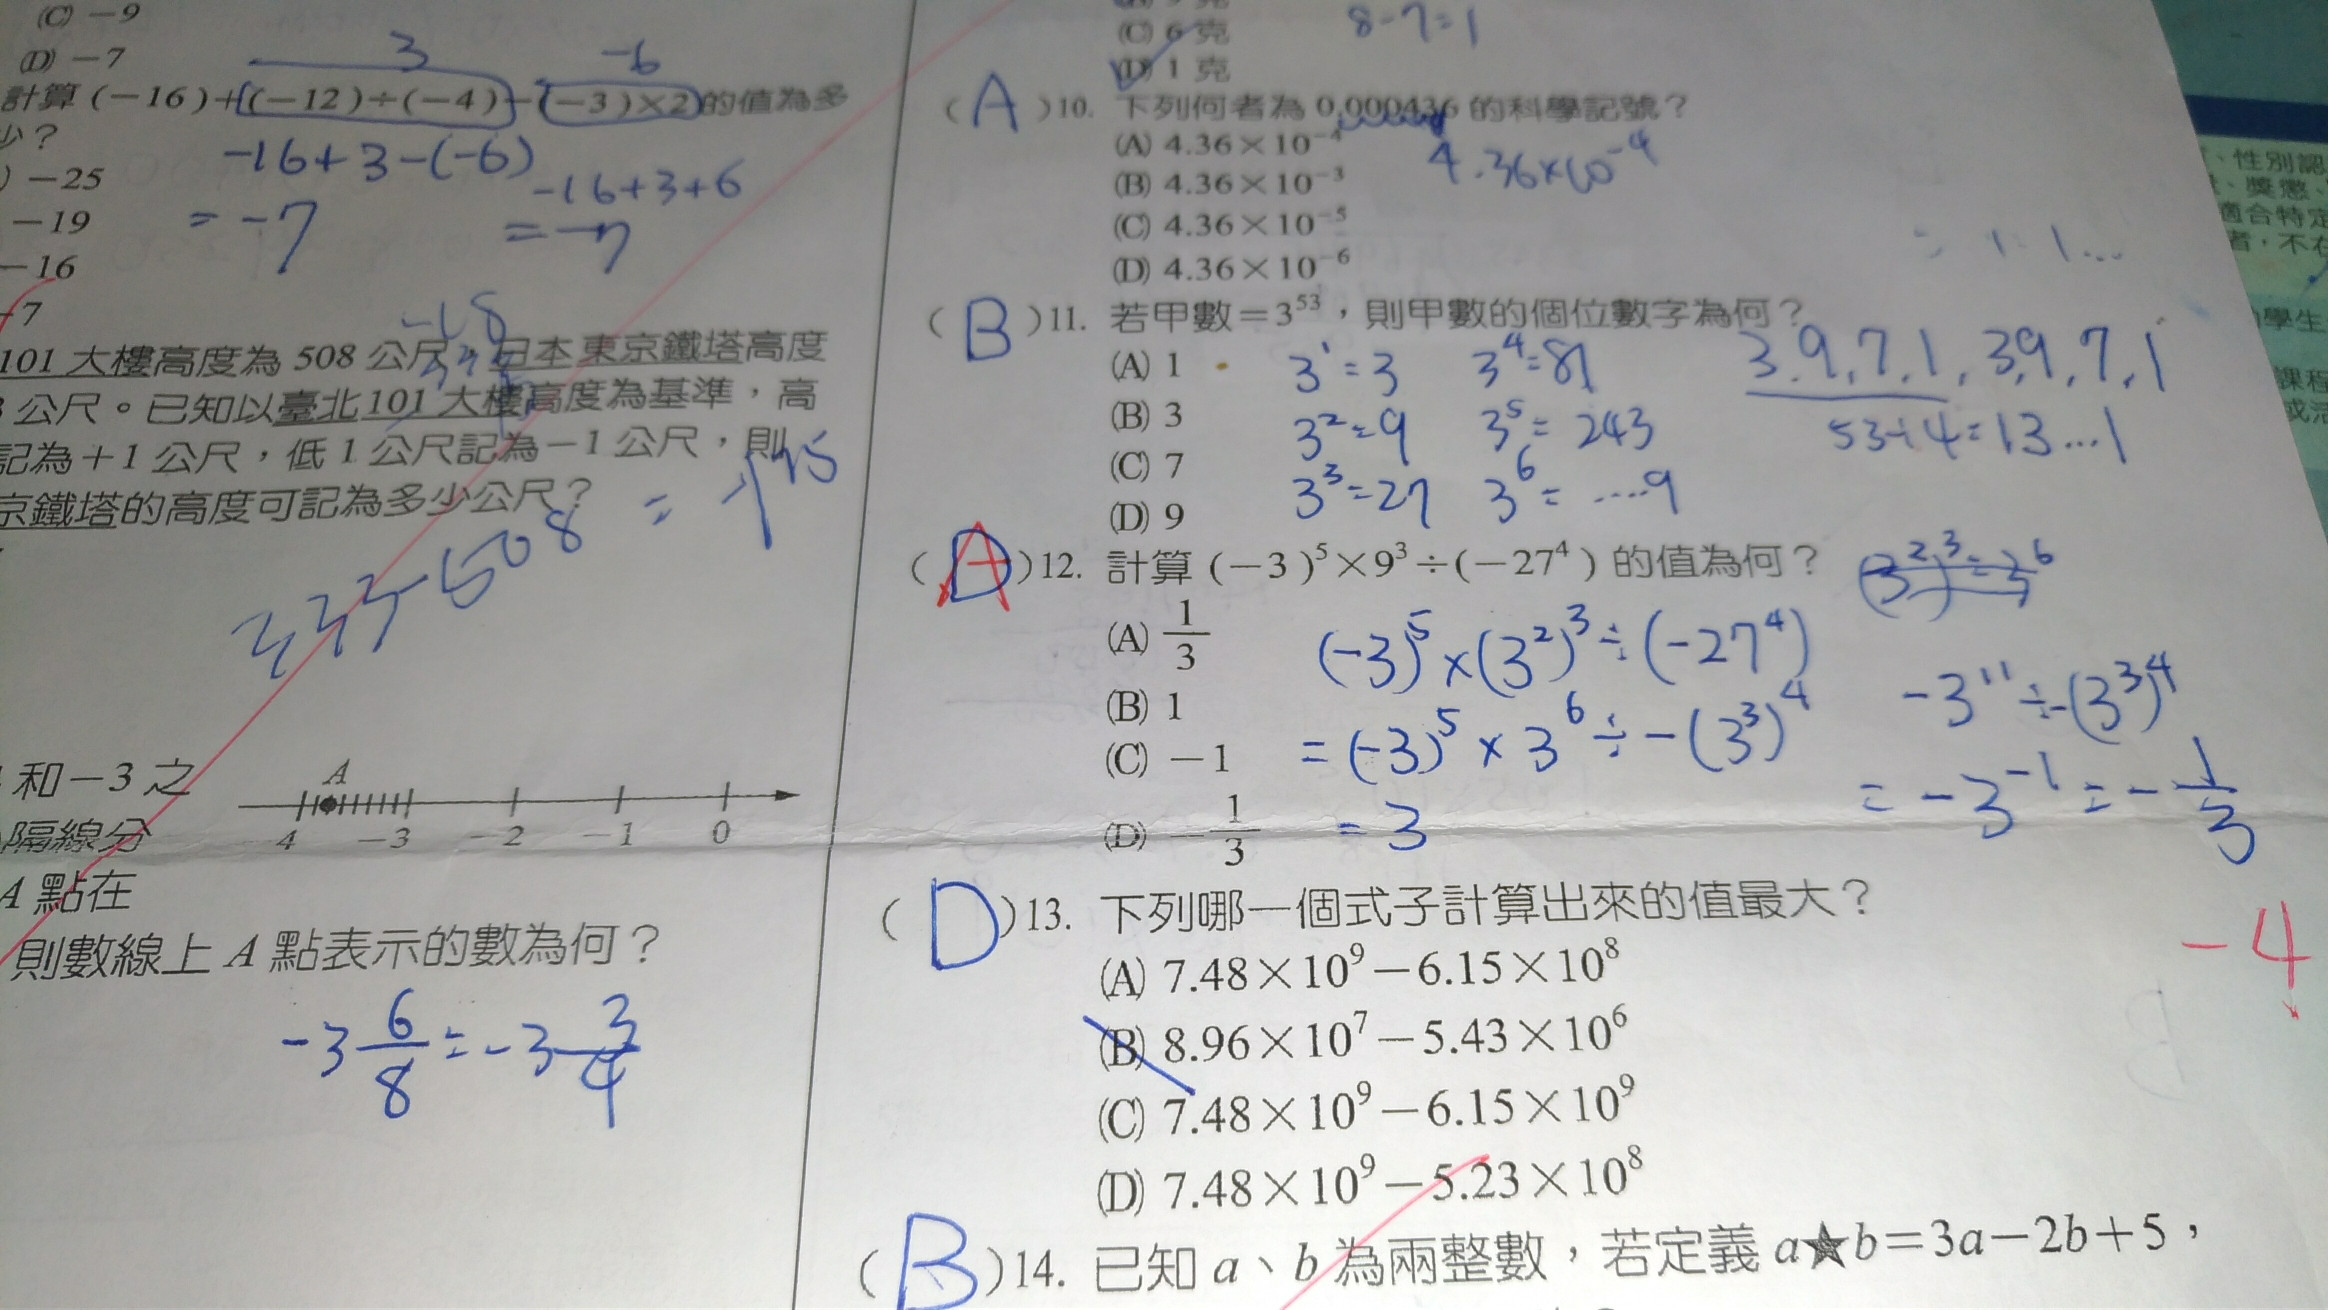 (C) －9
(D) －7
3
－6
計算 (－16)＋(－12)÷(－4)－(－3)×2 的值為多
少？
-16+3-(-6)
-16+3+6
) －25
= -7
= -7
－19
－16
-7
101 大樓高度為 508 公尺，日本東京鐵塔高度
公尺。已知以臺北101 大樓高度為基準，高
記為＋1 公尺，低 1 公尺記為－1 公尺，則
京鐵塔的高度可記為多少公尺？
333-508 = -175
和－3 之
A
4 －3 －2 －1 0
隔線分
A 點在
則數線上 A 點表示的數為何？
-3 6/8 = -3 3/4
(C) 6 克
8-7=1
(D) 1 克
( A )10. 下列何者為 0.000436 的科學記號？
(A) 4.36×10⁻⁴
4.36×10⁻⁴
(B) 4.36×10⁻³
(C) 4.36×10⁻⁵
(D) 4.36×10⁻⁶
( B )11. 若甲數＝3⁵³，則甲數的個位數字為何？
(A) 1
3¹=3 3⁴=81
3.9,7,1,3,9,7,1
(B) 3
3²=9 3⁵=243
53÷4=13...1
(C) 7
3³=27 3⁶=....9
(D) 9
( D A )12. 計算 (－3)⁵×9³÷(－27⁴) 的值為何？
(3²)³=3⁶
(A) 1/3
(-3)⁵×(3²)³÷(-27⁴)
-3¹¹÷-(3³)⁴
(B) 1
=(-3)⁵×3⁶÷-(3³)⁴
(C) －1
= -3⁻¹ = -1/3
(D) －1/3
= 3
( D )13. 下列哪一個式子計算出來的值最大？
-4
(A) 7.48×10⁹－6.15×10⁸
(B) 8.96×10⁷－5.43×10⁶
(C) 7.48×10⁹－6.15×10⁹
(D) 7.48×10⁹－5.23×10⁸
( B )14. 已知 a、b 為兩整數，若定義 a★b＝3a－2b＋5，
、性別認
、獎懲、
適合特定
者，不在
學生
課程